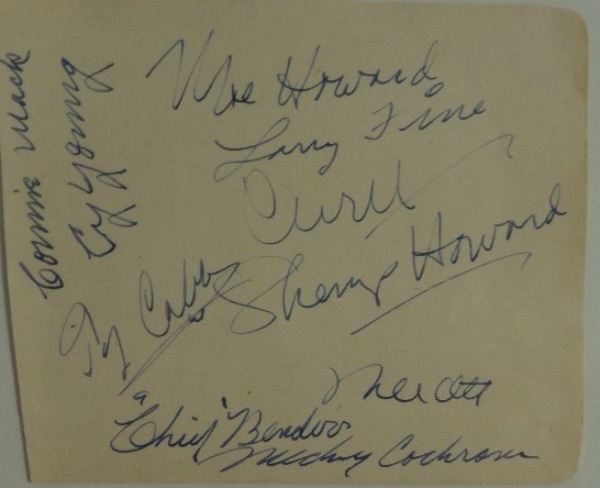 Moe Howard
Larry Fine
Curly
Shemp Howard
Connie Mack
Cy Young
Ty Cobb
Mel Ott
"Chief" Bender
Mickey Cochrane